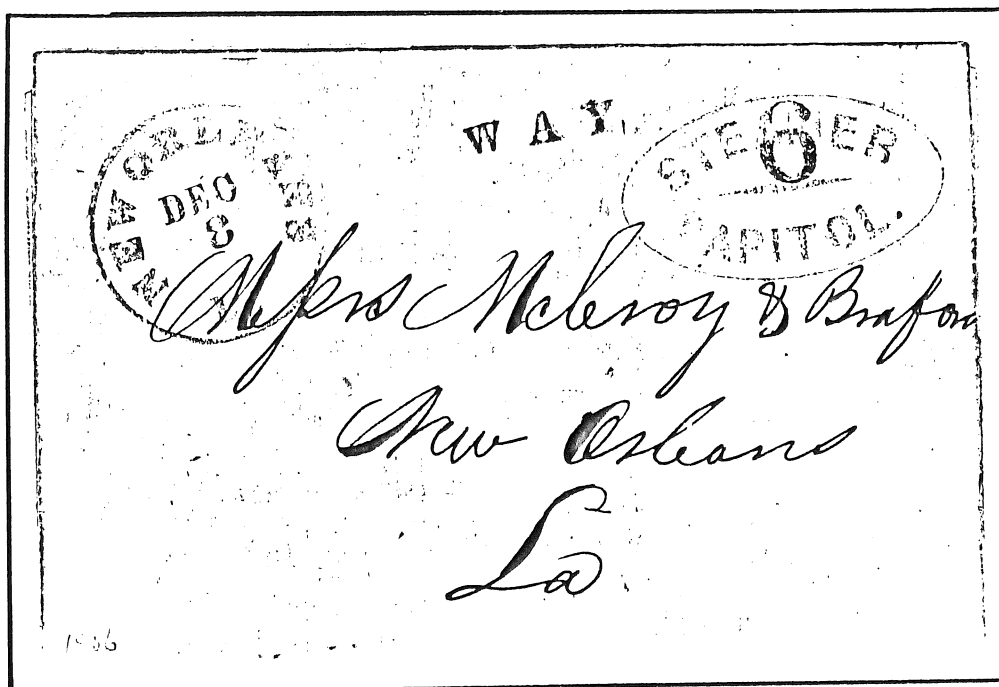 NEW ORLEANS
DEC
8
WAY
6
STEAMER
CAPITOL.
Messrs McIlroy & Braford
New Orleans
La.